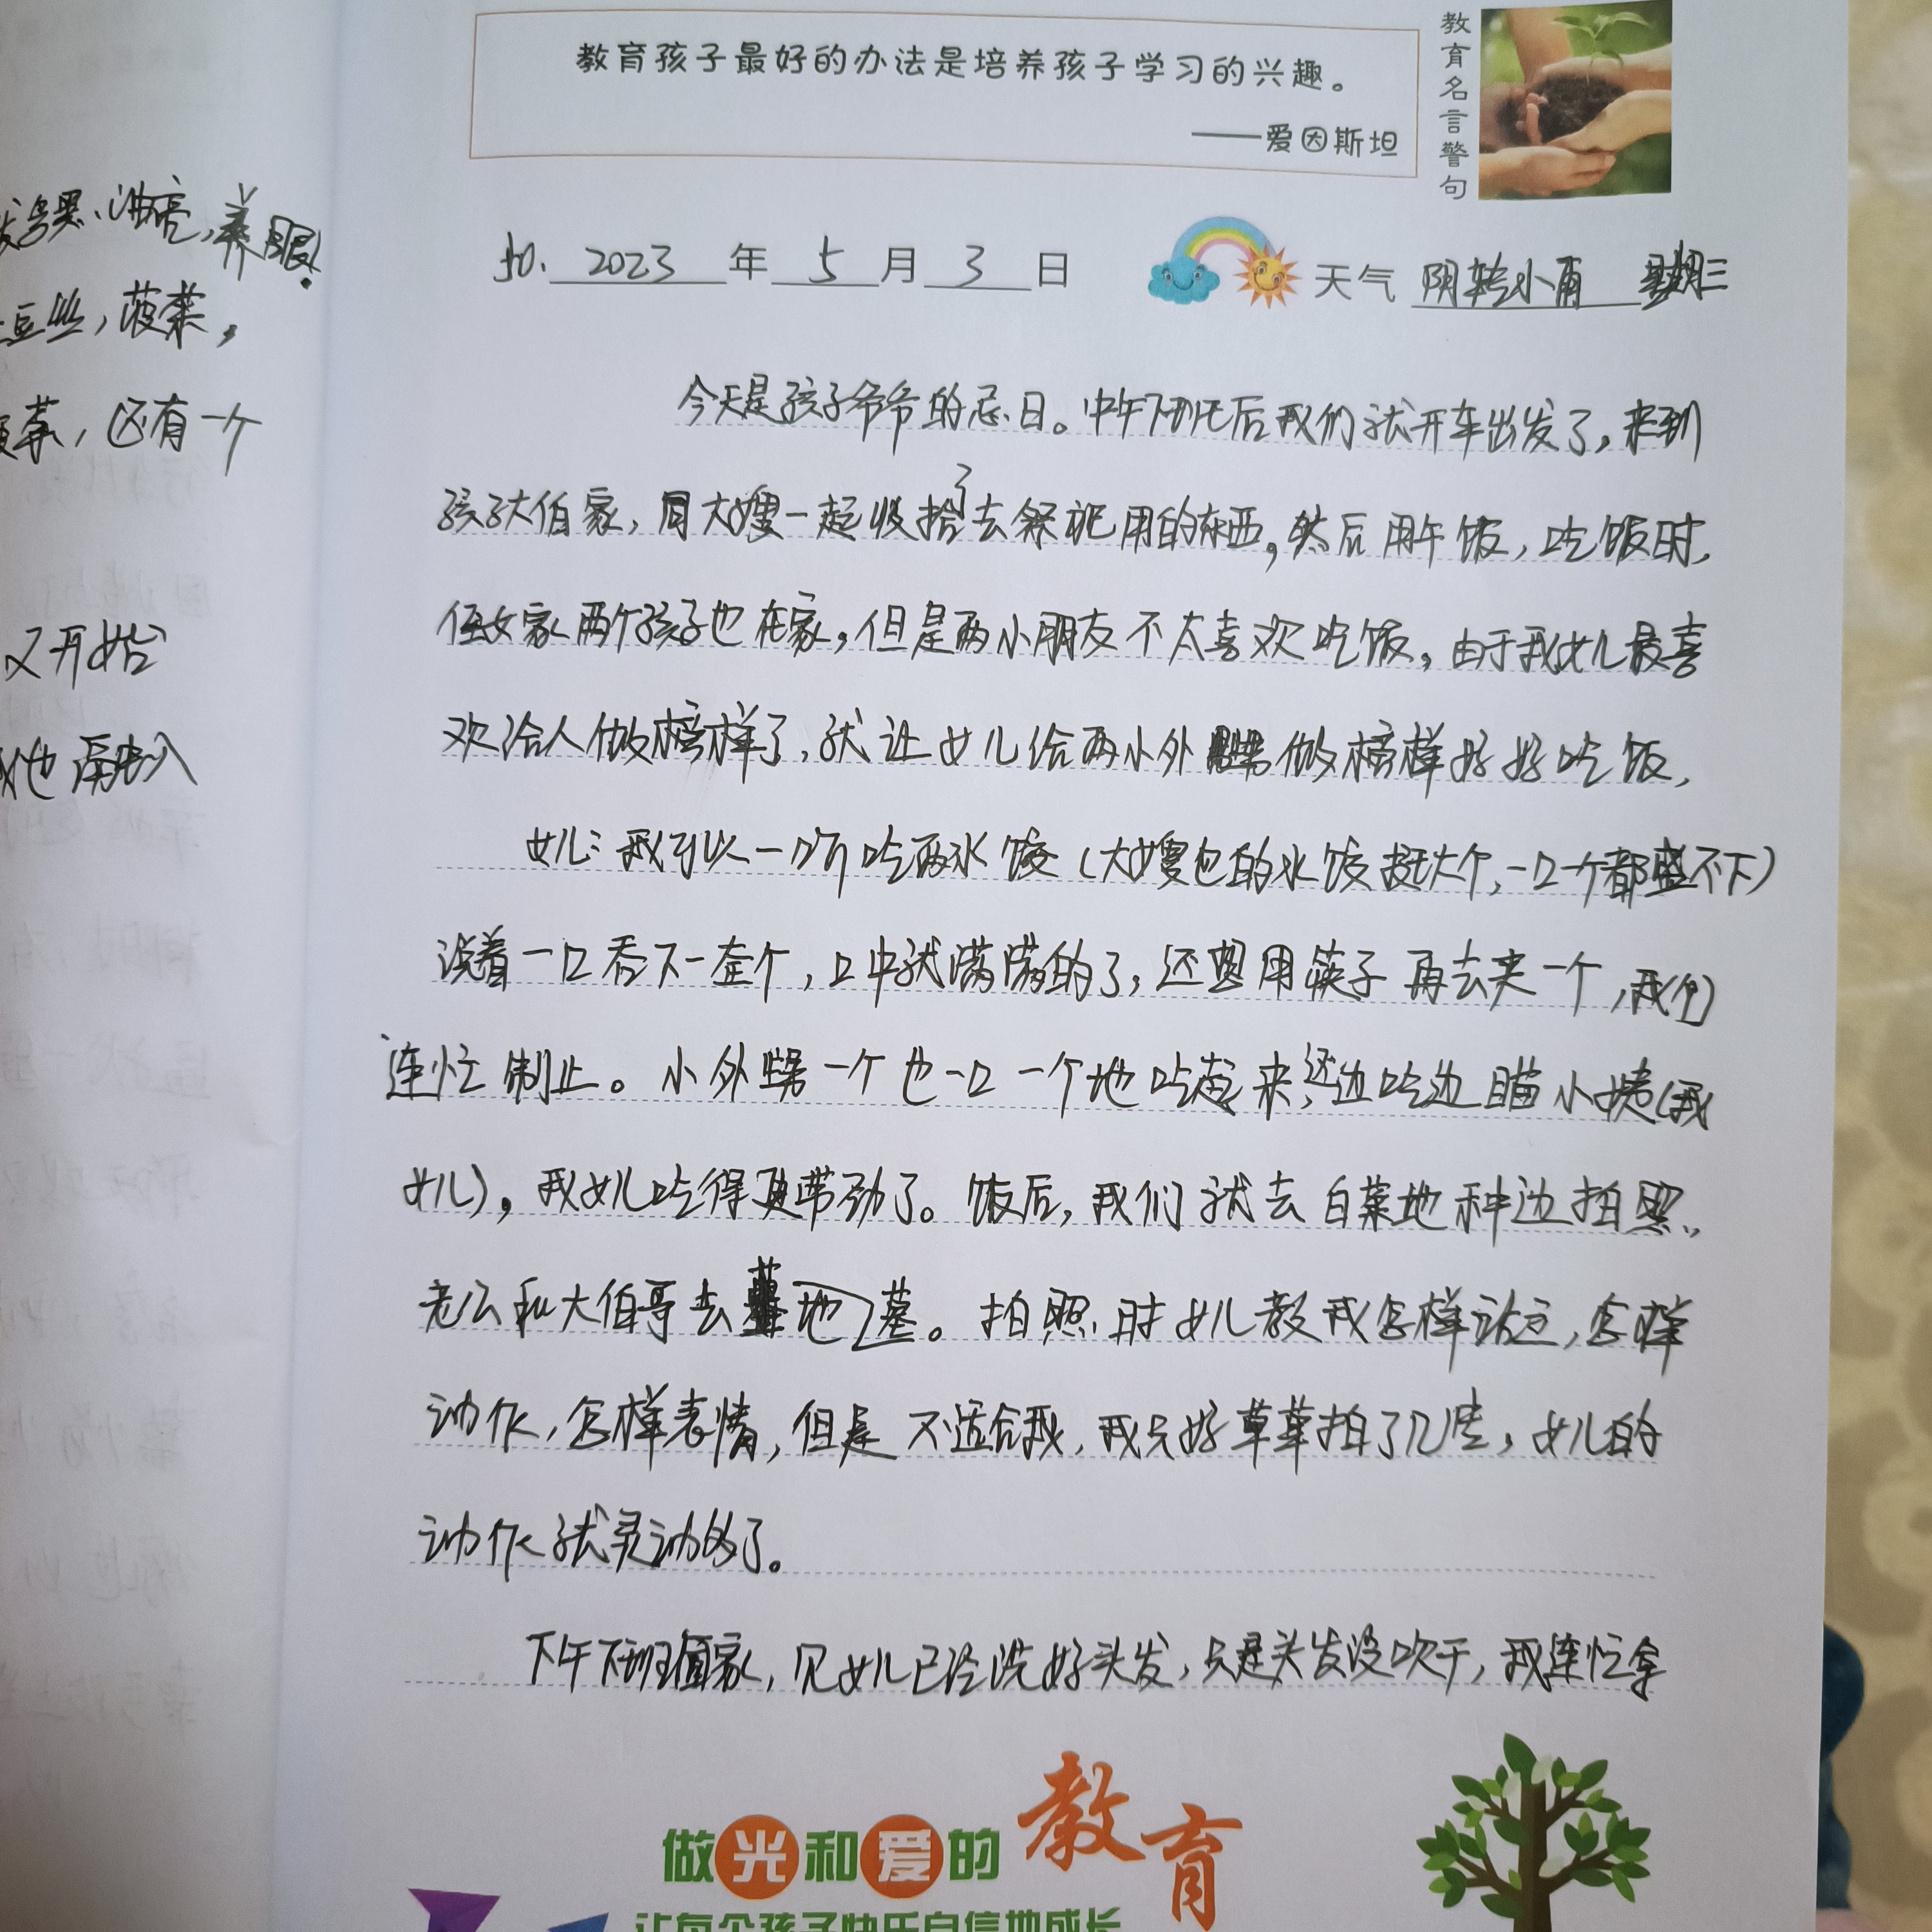 教育孩子最好的办法是培养孩子学习的兴趣。
——爱因斯坦
教育名言警句
2023年5月3日 天气 阴转小雨 星期三
养眼!
土豆丝,菠菜,
还有一个
又开始
他
今天是孩子爷爷的忌日。中午下班后我们就开车出发了,来到
孩子大伯家,同大嫂一起收拾了去祭祀用的东西,然后用午饭,吃饭时,
侄女家两个孩子也在家,但是两小朋友不太喜欢吃饭,由于我女儿最喜
欢给人做榜样了,就让女儿给两小外甥做榜样好好吃饭,
女儿:我可以一口气吃两水饺(大嫂包的水饺挺大个,一口一个都盛不下)
说着一口吞下一整个,口中就满满的了,还要用筷子再去夹一个,我们
连忙制止。小外甥一个也一口一个地吃起来,还边吃边瞄小姨(我
女儿),我女儿吃得更带劲了。饭后,我们就去白菜地种边拍照,
老公和大伯哥去墓地墓。拍照时女儿教我怎样站立,怎样
动作,怎样表情,但是不适合我,我只好草草拍了几张,女儿的
动作就灵动多了。
下午下班回家,见女儿已经洗好头发,只是头发没吹干,我连忙拿
做光和爱的教育
让每个孩子快乐自信地成长